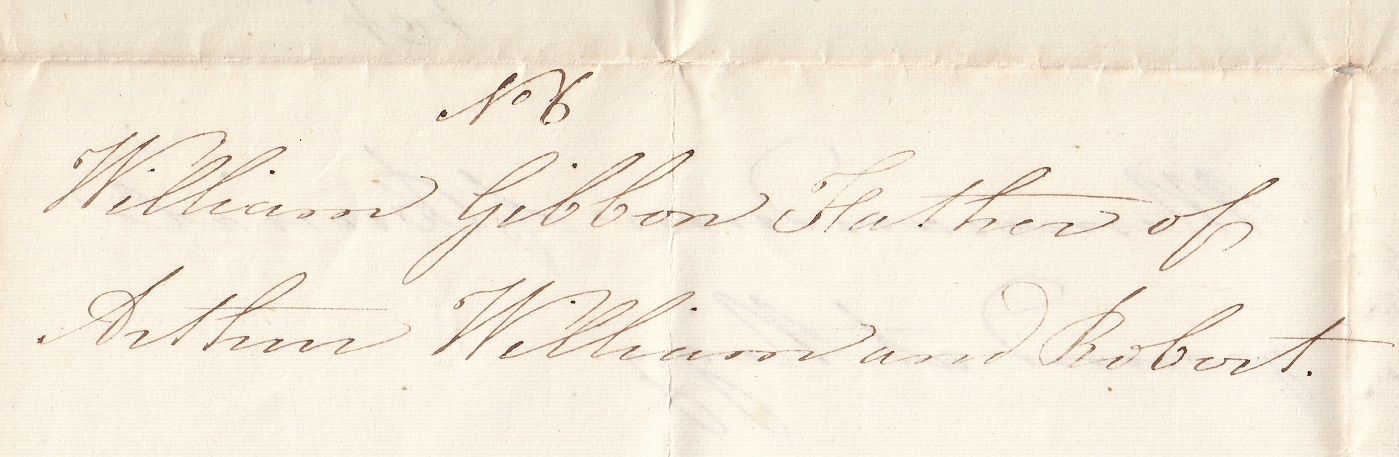 No 6
William Gibbon Father of
Arthur William and Robert.